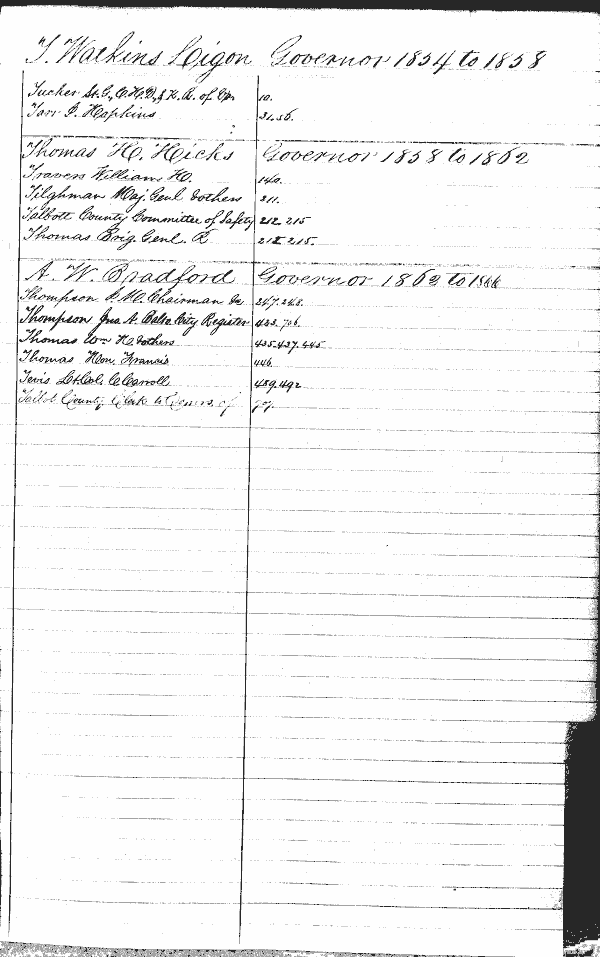 T. Watkins Ligon Governor 1854 to 1858
Tucker St. G., C.H.D., & H. R. of 10.
Tarr J. Hopkins 31.56.
Thomas H. Hicks Governor 1858 to 1862
Travers William H. 140.
Tilghman Maj. Genl & others 211.
Talbott County Committee of Safety 212. 215
Thomas Brig. Genl. R 212. 215.
A. W. Bradford Governor 1862 to 1866
Thompson Chairman &c. 247. 248.
Thompson Jno A. Balto. City Register 433. 706.
Thomas Wm H. & others 435. 437. 445
Thomas Hon. Francis 446.
Tevis Lt. Col. C Carroll 489. 492
Talbot County Clerk to Comrs. of